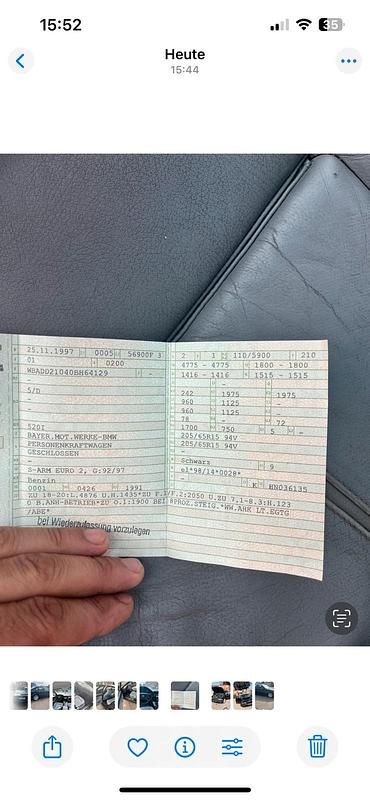 15:52
35
Heute
15:44
25.11.1997 0005 56900F 3
01 0200
WBADD21040BH64129 -
5/D
-
-
520I
BAYER.MOT.WERKE-BMW
PERSONENKRAFTWAGEN
GESCHLOSSEN
-
S-ARM EURO 2, G:92/97
Benzin
0001 0426 1991
2 1 110/5900 210
4775 - 4775 1800 - 1800
1416 - 1416 1515 - 1515
- -
242 1975 1975
960 1125 -
960 1125 -
78 - 72
1700 750 5 -
205/65R15 94V
205/65R15 94V
-
Schwarz 9
e1*98/14*0028*
- K HN036135
ZU 18-20:L.4876 U.H.1435*ZU F.1/F.2:2050 U.ZU 7.1-8.3:H.123
0 B.ANH-BETRIEB*ZU O.1:1900 BEI 8PROZ.STEIG.*WW.AHK LT.EGTG
/ABE*
bei Wiederzulassung vorzulegen